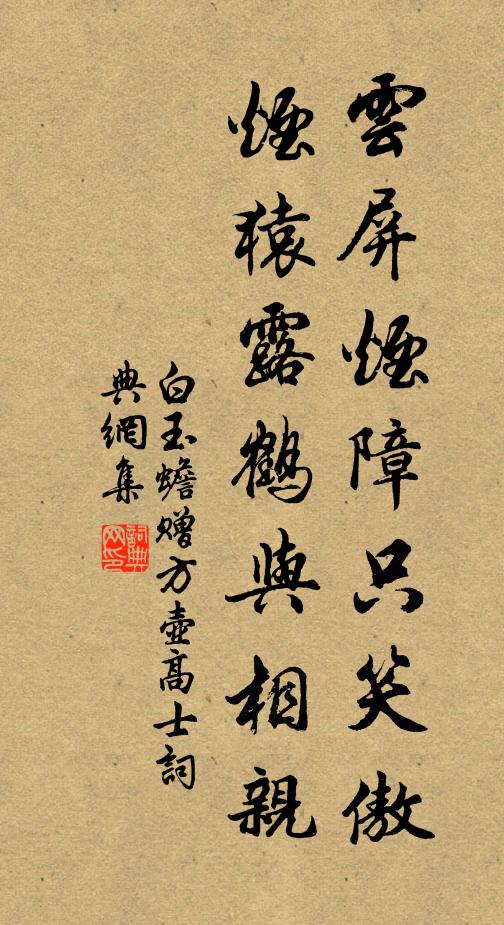 雲屏煙障只笑傲
煙猿露鶴與相親
白玉蟾贈方壺高士詞
典網集
詞典网印